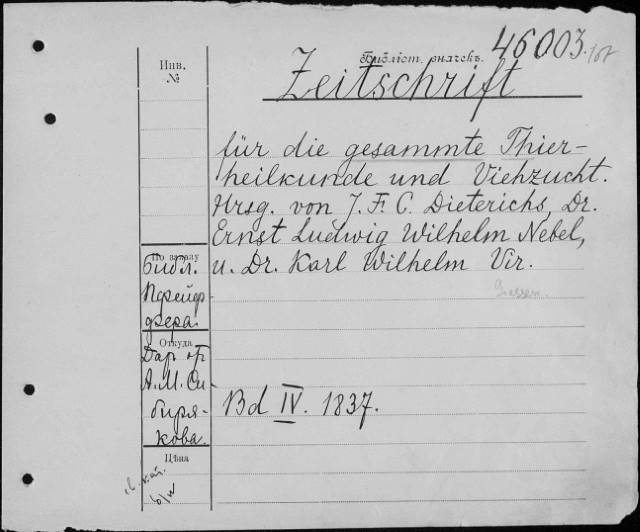 Библіот. значекъ. 46003.
Инв.
№
Zeitschrift
für die gesammte Thier-
heilkunde und Viehzucht.
Hrsg. von J. F. C. Dieterichs, Dr.
Ernst Ludwig Wilhelm Nebel,
u. Dr. Karl Wilhelm Vix.
Giessen.
По заказу
Библ.
Пфейф-
фера.
Откуда
Дар от
А. М. Си-
биря-
кова.
Bd IV. 1837.
Цѣна
кат.
b/w